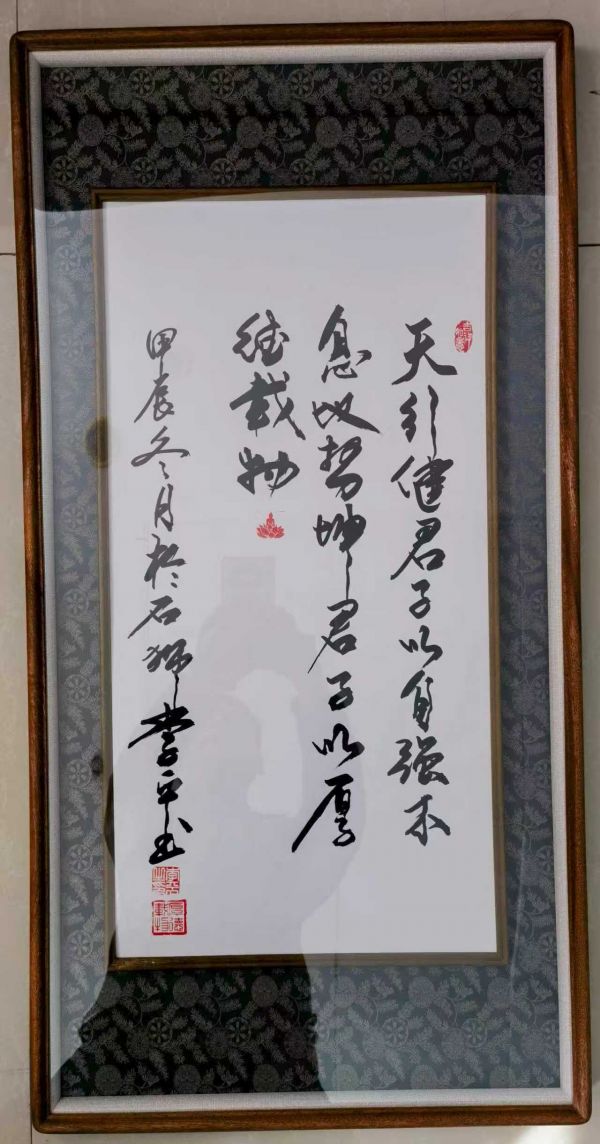 天行健君子以自强不
息地势坤君子以厚
德载物
甲辰冬月於石狮李平书